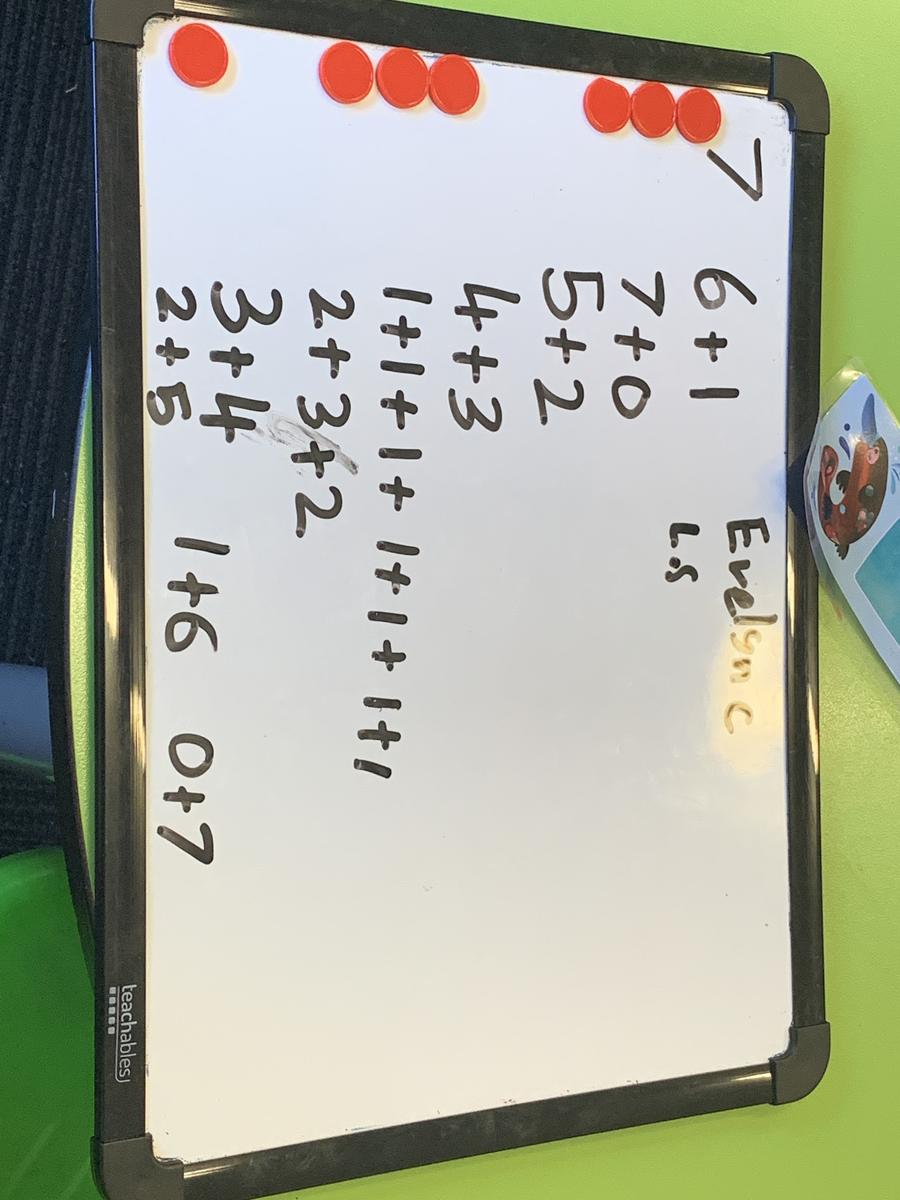 7
6+1
7+0
5+2
4+3
1+1+1+1+1+1+1+1
2+3+2
3+4
2+5 1+6 0+7
Evelyn C
L.S
teachables